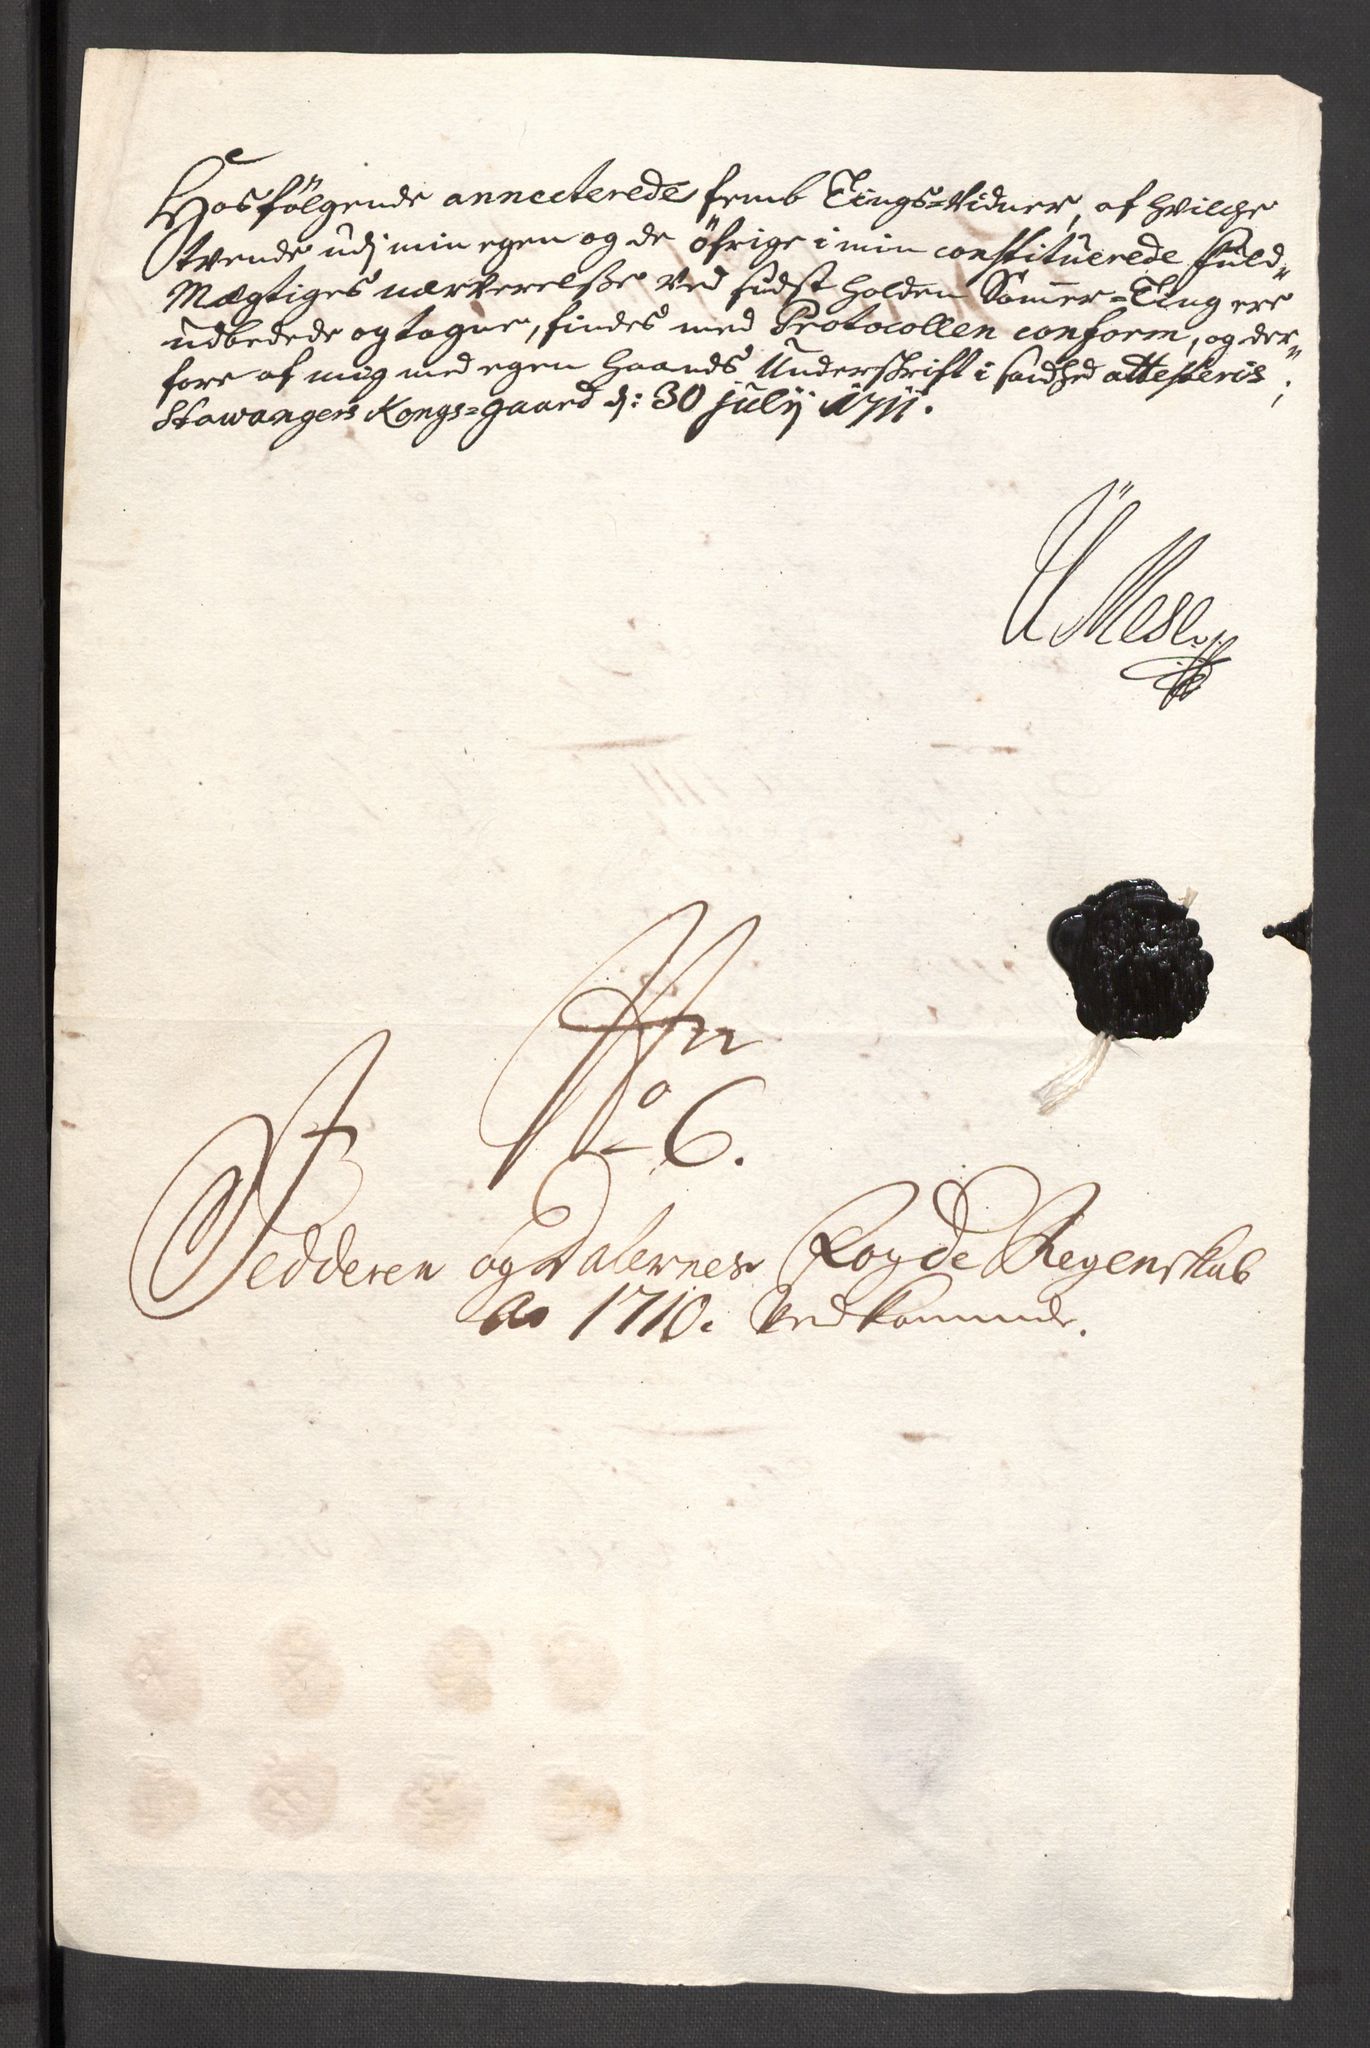 Hosfølgende annecterede femb Tings=Vidner, af hvilche
tvende udj min egen og de öfrige i min constituerede Fuld„
Mægtiges nærverelsse ved sidst holden Somer=Ting ere
udbedede og tagne, findes med Protocollen conform, og der„
fore af mig med egen haands Underschrift i sandhed attesteris,
Stawangers Kongs=gaard d: 30 julij 1711.
No 6.
Jedderen og Dalernes Fogde Regenskab
Ao 1710. Vedkommende.